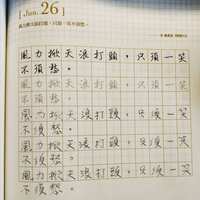 [ Jan. 26 ]
風力掀天浪打頭，只須一笑不須愁。
風力掀天浪打頭，只須一笑
不須愁。
風力掀天浪打頭，只須一笑
不須愁。
風力掀天浪打頭，只須一笑
不須愁。
風力掀天浪打頭，只須一笑
不須愁。
風力掀天浪打頭，只須一笑
不須愁。